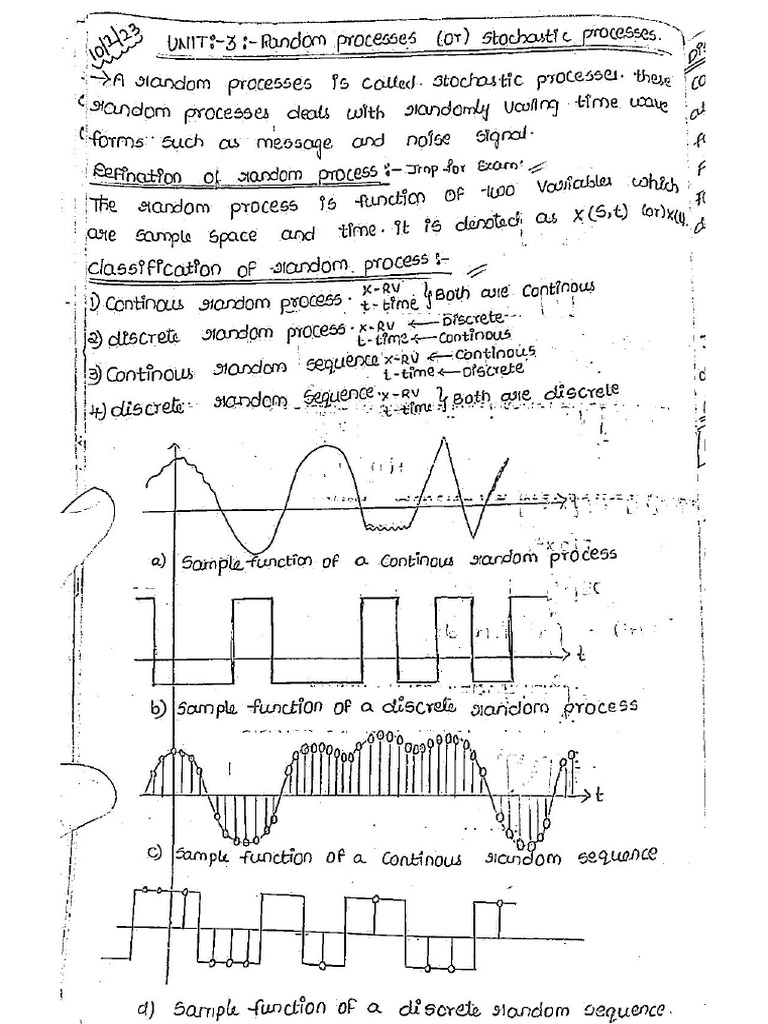 10/2/23
UNIT:-3:- Random processes (or) Stochastic processes.
→ A random processes is called stochastic processes. these
random processes deals with randomly varing time wave
forms such as message and noise signal.
Refination of random process:- Imp for Exam:
The random process is function of two variables which
are sample space and time. it is denoted as X(S,t) (or) X(t).
classification of random process:-
1) Continous random process. X-RV t-time } Both are Continous
2) discrete random process. X-RV ← Discrete t-time ← Continous
3) Continous random sequence X-RV ← Continous t-time ← Discrete
4) discrete random sequence. X-RV t-time } Both are discrete
a) Sample function of a Continous random process
t
b) Sample function of a discrete random process
t
c) Sample function of a Continous random sequence
d) Sample function of a discrete random sequence.